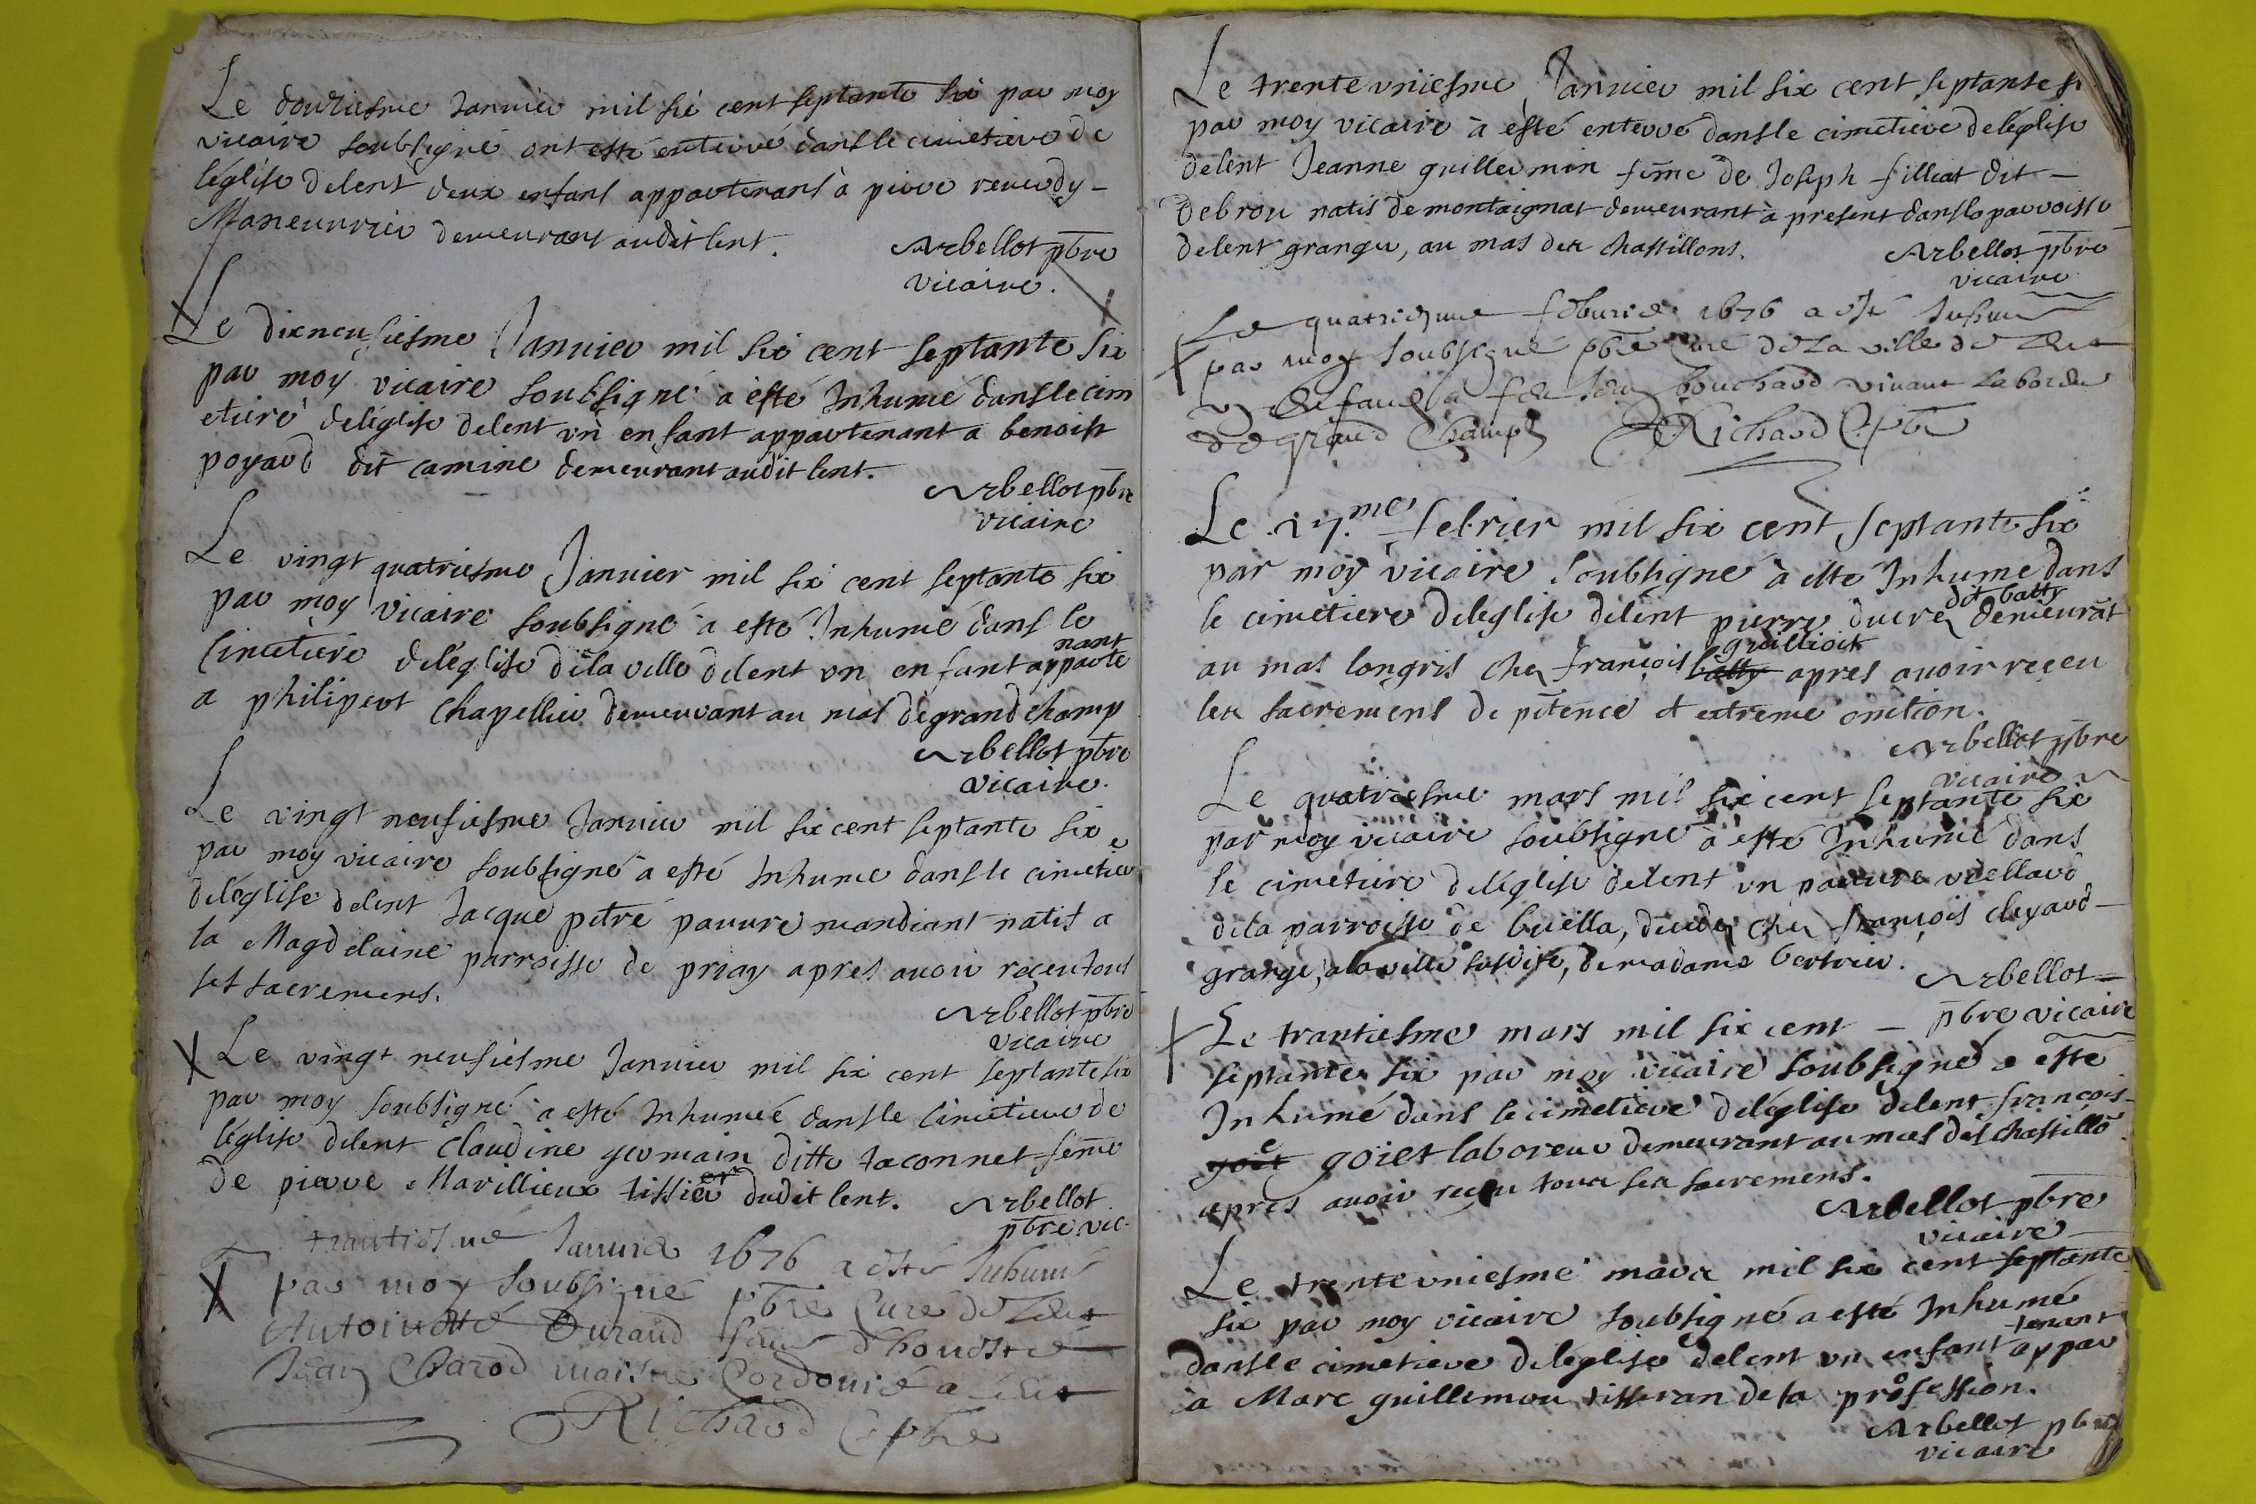 Le douziesme Januier mil six cent septante six par moy
vicaire soubsigné ont esté enterré dans le cimetiere de
léglise delent deux enfans appartenans à pierre reuerdy -
Maneuurier demeurant audit lent.
Arbellot pbre
vicaire.
Le dixneufiesme Januier mil six cent septante six
par moy vicaire soubsigné à esté Inhumé dans le cim
etiere deléglise delent vn enfant appartenant a benoist
poyard dit camine demeurant audit lent.
Arbellot pbre
vicaire
Le vingt quatriesme Januier mil six cent septante six
par moy vicaire soubsigné a esté Inhumé dans le
Cimetiere deléglise dela ville delent vn enfant apparte
nant
a philipert Chapellier demeurant au mas de grand champ
Arbellot pbre
vicaire.
Le vingt neufiesme Januier mil six cent septante six
par moy vicaire soubsigné a esté Inhume dans le cimetiere
deléglise delent Jacque pitré pauure mandiant natif a
la Magdelaine parroisse de priay apres auoir reçeu tous
ses sacremens.
Arbellot pbre
vicaire
Le vingt neufiesme Januier mil six cent septante six
par moy soubsigné a esté Inhumée dans le Cimetiere de
léglise delent Claudine germain ditte taconnet feme
de pierre Marillieux tissier dudit lent.
Arbellot
pbre vic.
Le trantiesme Januier 1676 a esté Inhumé
par moy soubsigné pbre Curé de Lent
Antoinette Durand feme d'honeste
Jean Charod maistre Cordonier a Lent
Richard C. pbre
Le trente vniesme Januier mil six cent septante si
par moy vicaire à esté enterré dans le cimetiere deléglise
delent Jeanne guillermin feme de Joseph filliat dit -
debrou natif de montaignat demeurant à present dans la parroisse
delent granger, au mas des chastillons.
Arbellot pbre
vicaire
Le quatriesme feburier 1676 a esté Inhumé
par moy soubsigné pbre Curé de La ville de Lent
vn enfant a feu Jean bouchard viuant laboreur
de grand Champ Richard C. pbre
Le 27.me febrier mil six cent septante six
par moy vicaire soubsigné à este Inhume dans
le cimetiere deleglise delent pierre ducre dit batty demeurat
au mas longris chez françois batty guillioit apres auoir reçeu
les sacremens de pitence et extreme onction.
Arbellot pbre
vicaire
Le quatriesme mars mil six cent septante six
par moy vicaire soubsigné à esté Inhumé dans
le cimetiere deléglise delent vn pauure viellard
dela parroisse de buella, chez françois cleyard -
granger, a la ville susdite, de madame bertrier.
Arbellot -
pbre vicaire
Le trantiesme mars mil six cent -
septante six par moy vicaire soubsigné a esté
Inhumé dans le cimetiere deléglise delent françois
goiet goiet laboreur demeurant au mas des chastillō
apres auoir reçeu tous ses sacremens.
Arbellot pbre
vicaire
Le trente vniesme mars mil six cent septante
six par moy vicaire soubsigné a esté Inhumé
dans le cimetiere deléglise delent vn enfant appar
tenant
à Marc guillemou, tisseran de sa profession.
Arbellot pbre
vicaire